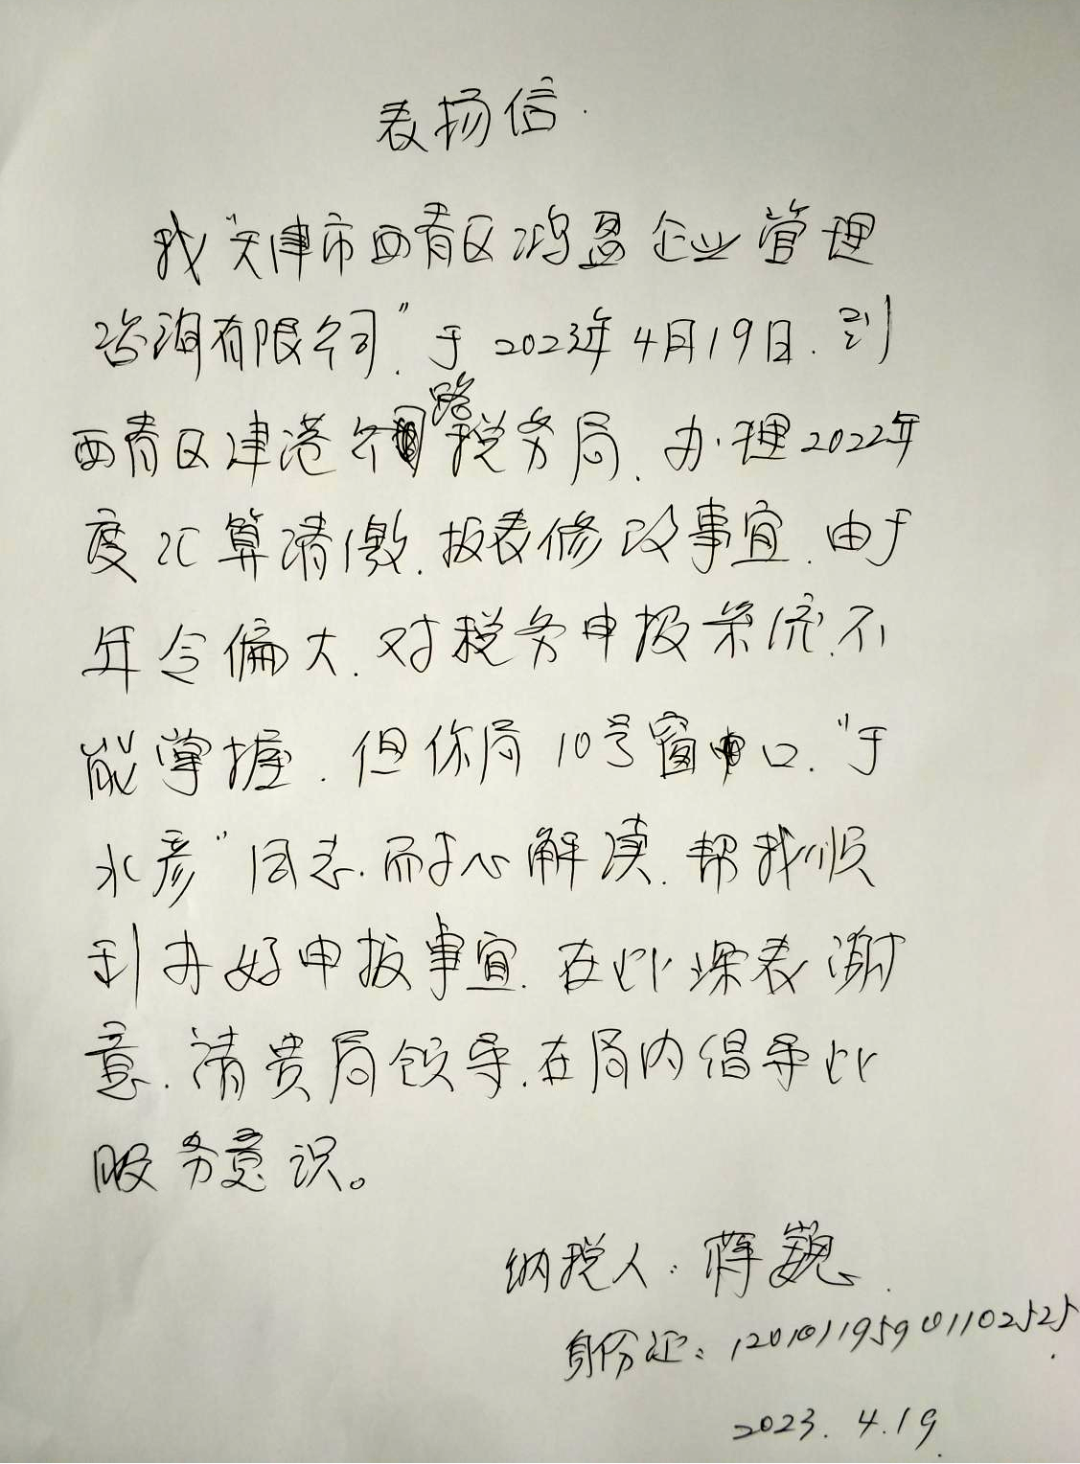 表扬信.
我"天津市西青区鸿盈企业管理
咨询有限公司".于2023年4月19日.到
西青区津港公路税务局.办理2022年
度汇算清缴.报表修改事宜.由于
年令偏大.对税务申报系统.不
能掌握.但你局10号窗口."于
水彦"同志.耐心解读.帮我顺
利办好申报事宜.在此深表谢
意.请贵局领导.在局内倡导此
服务意识。
纳税人:蒋巍.
身份证:120101195901102525.
2023.4.19